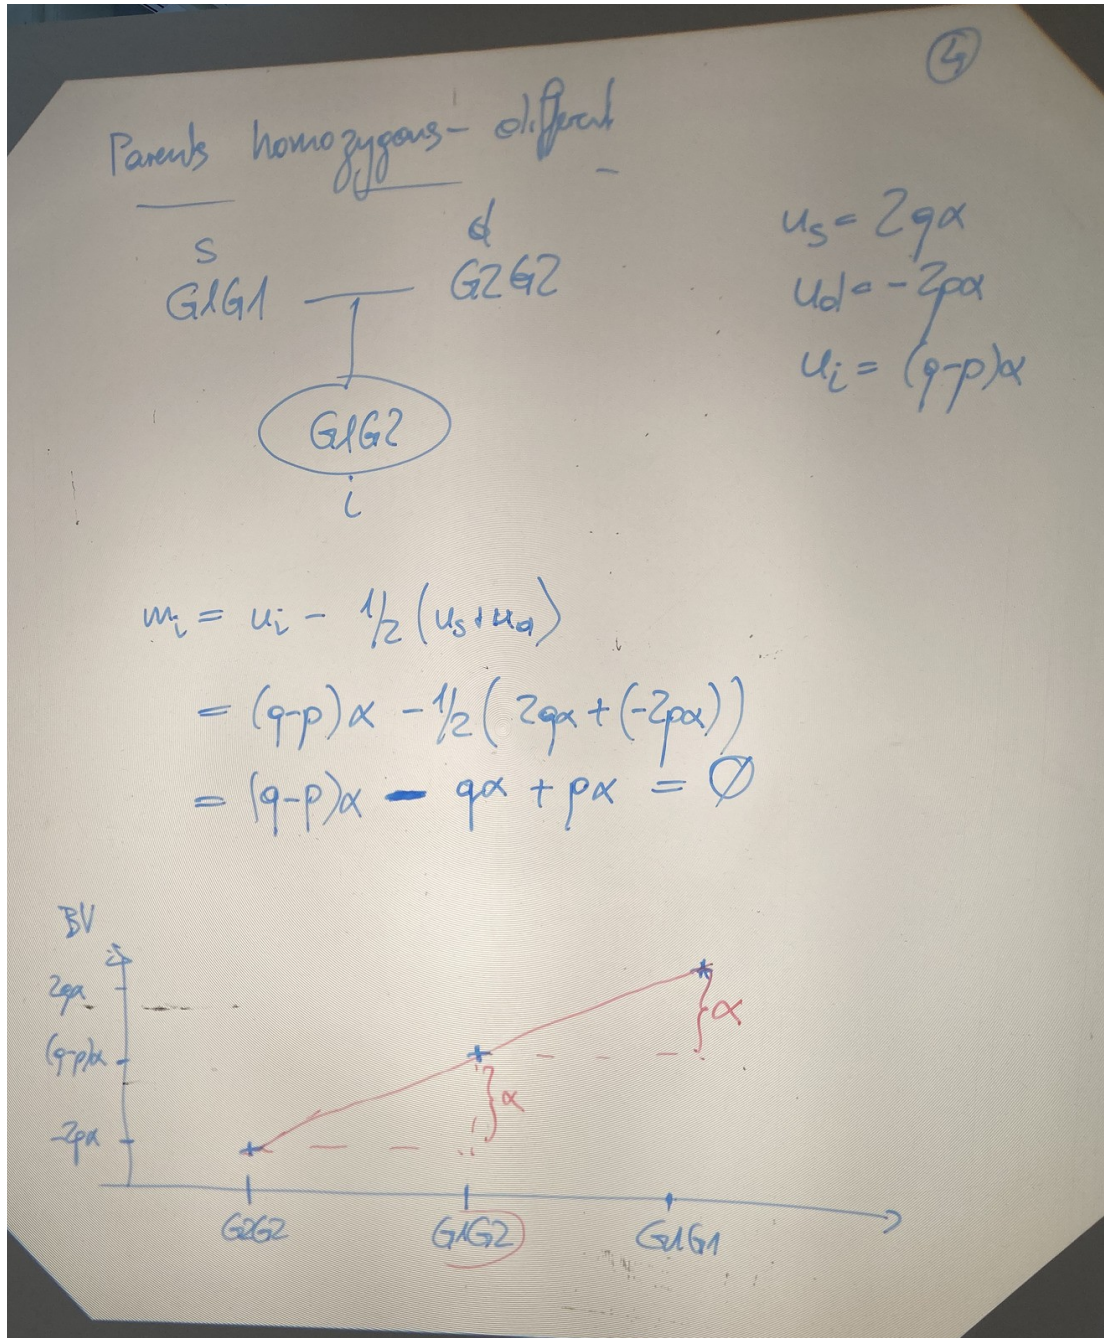 4
Parents homozygous - different
s
d
G1G1
G2G2
G1G2
i
us = 2qα
ud = -2pα
ui = (q-p)α
mi = ui - 1/2 (us+ud)
= (q-p)α - 1/2 ( 2qα + (-2pα))
= (q-p)α - qα + pα = ∅
BV
2qα
(q-p)α
-2pα
α
α
G2G2
G1G2
G1G1